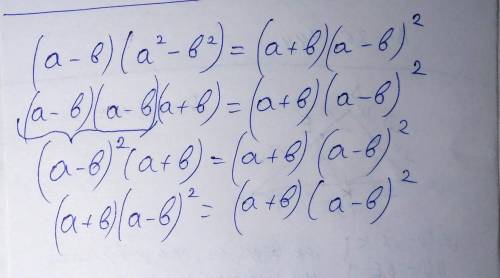 (a-в)(a²-в²)=(a+в)(a-в)²
(a-в)(a-в)(a+в)=(a+в)(a-в)²
(a-в)²(a+в)=(a+в)(a-в)²
(a+в)(a-в)²=(a+в)(a-в)²